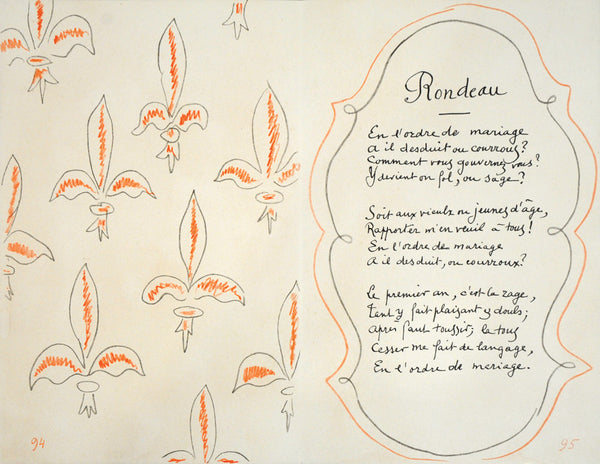 Rondeau
En l'ordre de mariage
a il desduit ou courrous?
Comment vous gouvernez vous?
Y devient on fol, ou sage?
Soit aux vieulx ou jeunes d'âge,
Rapporter m'en veuil à tous!
En l'ordre de mariage
A il desduit, ou courroux?
Le premier an, c'est la rage,
Tent y fait plaisant y doulx;
après fault tousser; la tous
Cesser me fait de langage,
En l'ordre de mariage.
94
95